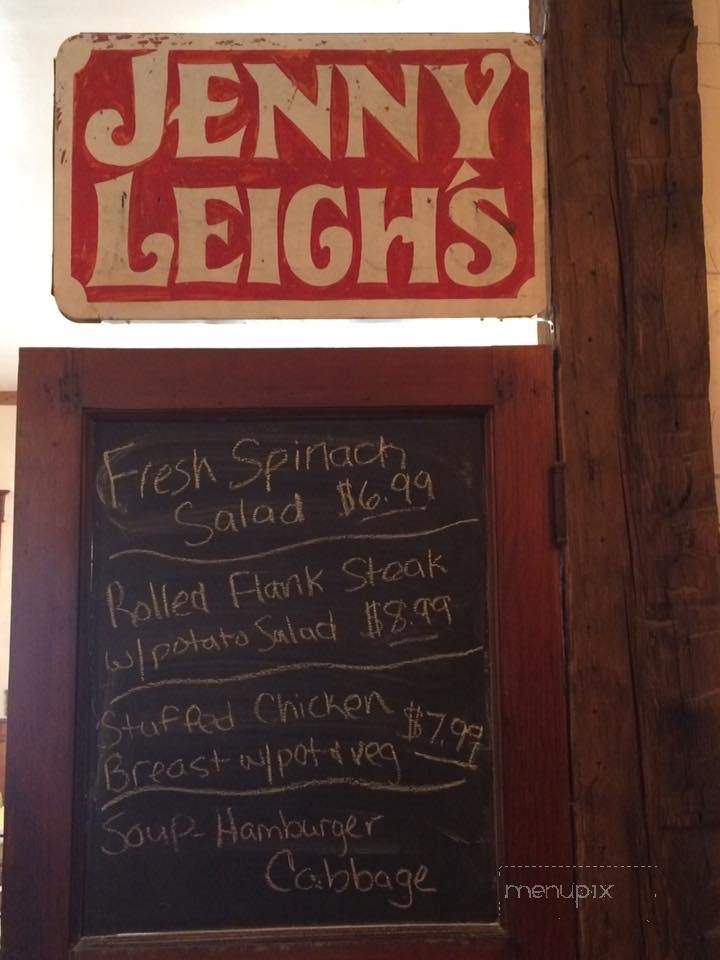 JENNY
LEIGH'S
Fresh Spinach
Salad $6.99
Rolled Flank Steak
w/potato Salad $8.99
Stuffed Chicken $7.99
Breast w/pot & veg
Soup - Hamburger
Cabbage
menupix